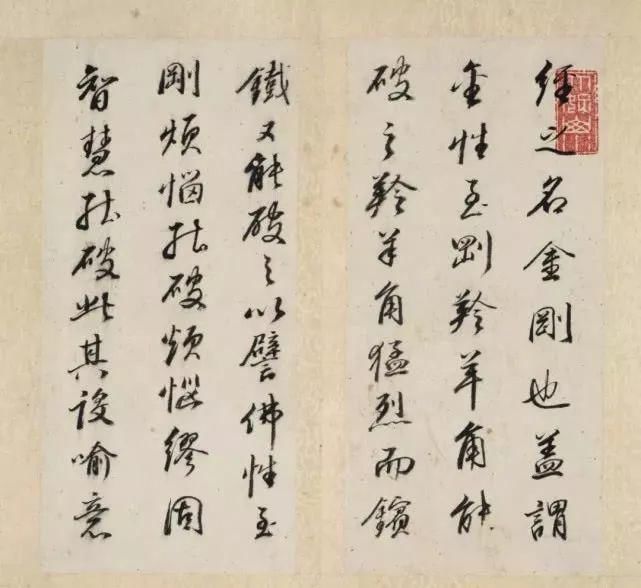 經之名金剛也蓋謂
金性至剛羚羊角能
破之羚羊角猛烈而鑌
鐵又能破之以譬佛性至
剛煩惱能破煩惱繆固
智慧能破此其設喻意